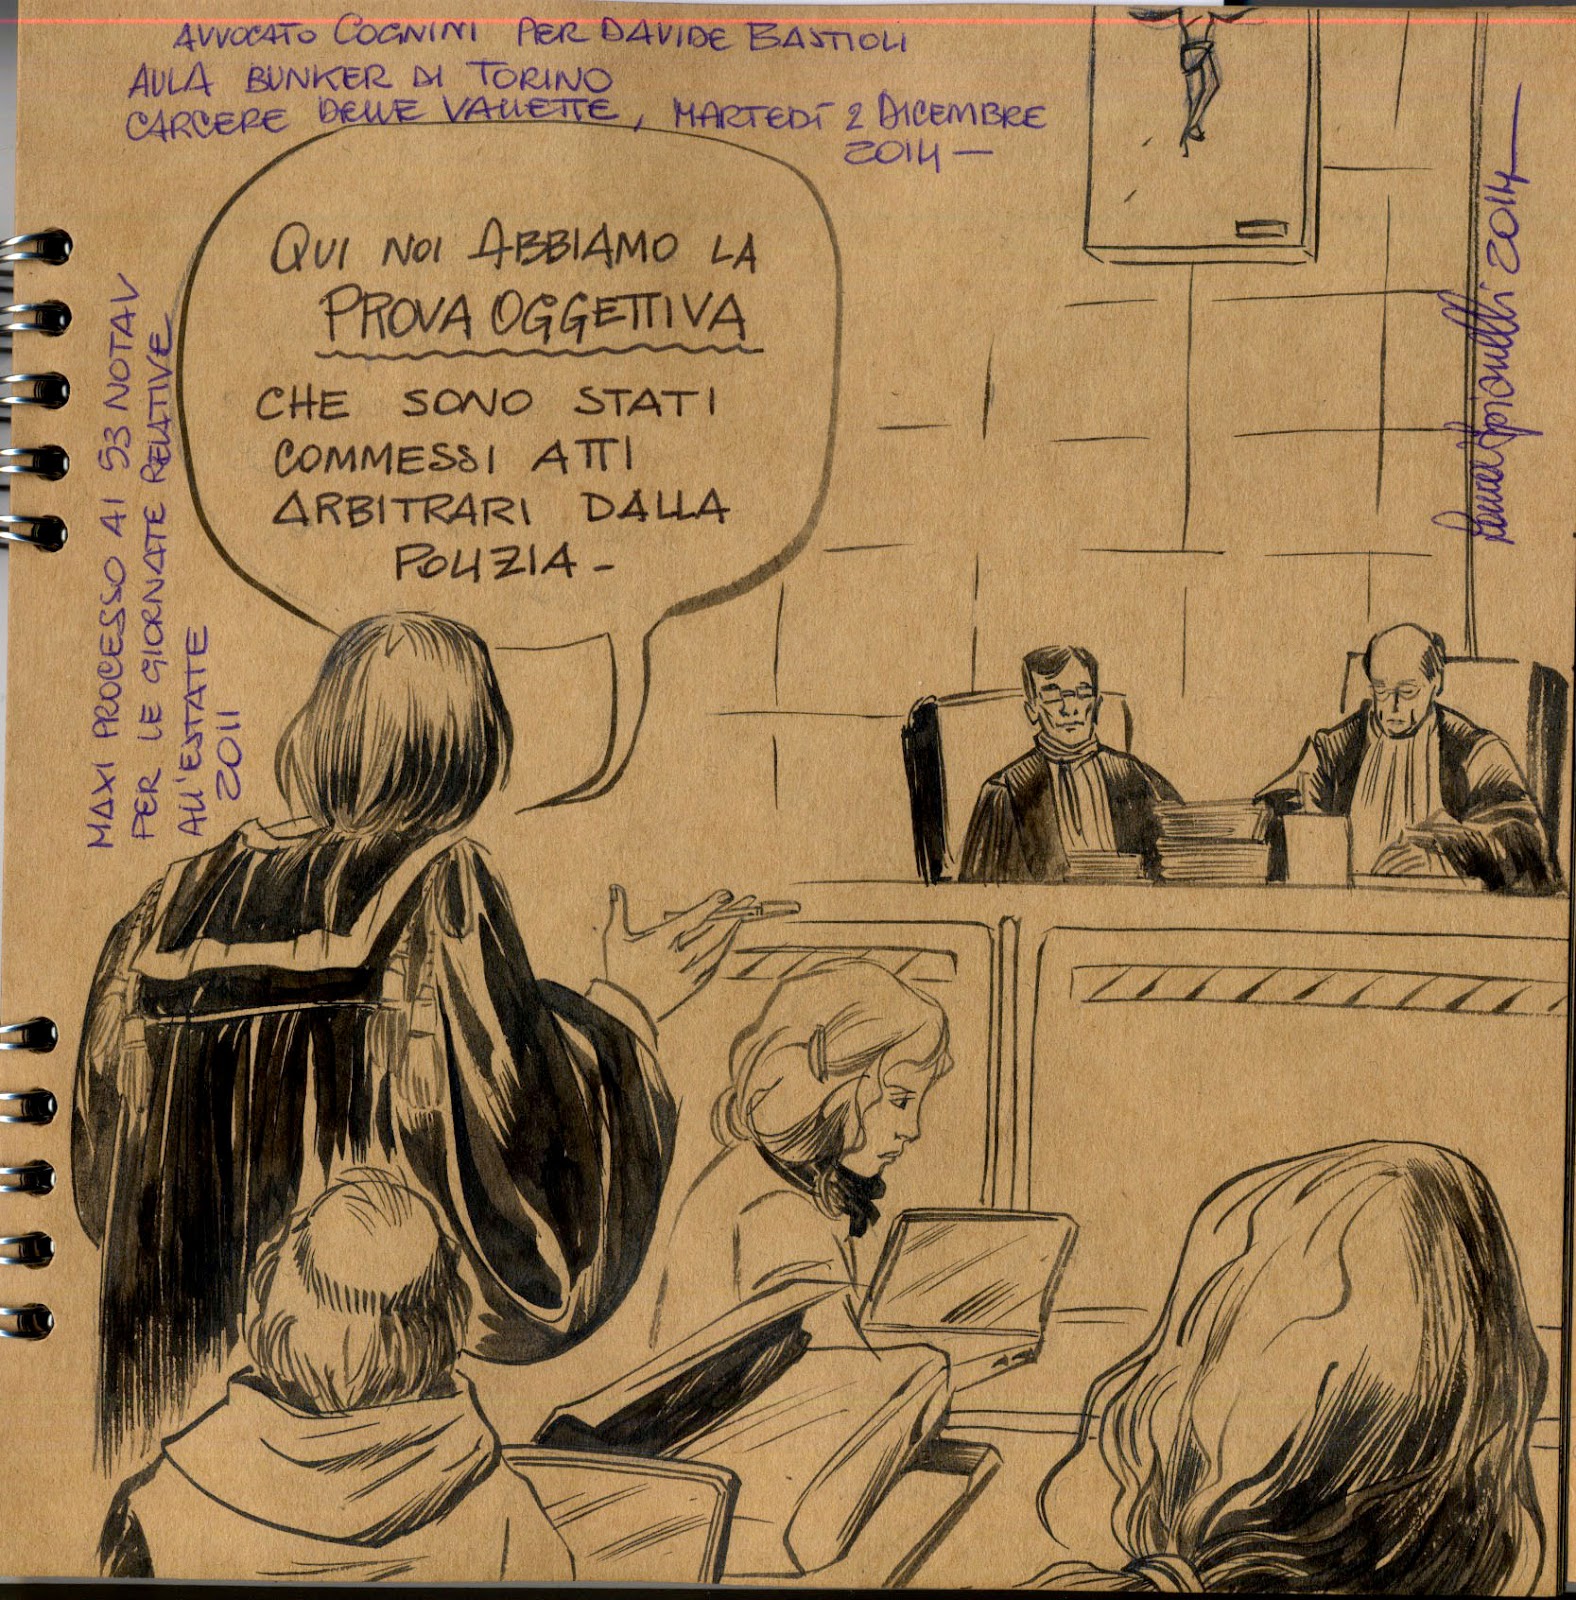 AVVOCATO COGNINI PER DAVIDE BASTIOLI
AULA BUNKER DI TORINO
CARCERE DELLE VALLETTE, MARTEDÌ 2 DICEMBRE
2014 —
QUI NOI ABBIAMO LA
PROVA OGGETTIVA
CHE SONO STATI
COMMESSI ATTI
ARBITRARI DALLA
POLIZIA -
MAXI PROCESSO AI 53 NOTAV
PER LE GIORNATE RELATIVE
ALL'ESTATE
2011
2014